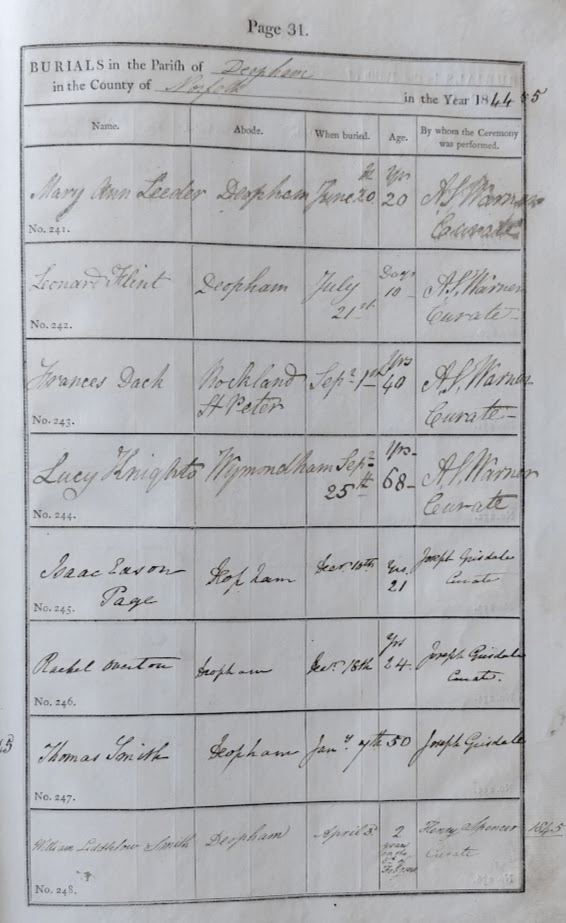 Page 31.
BURIALS in the Parish of Deopham
in the County of Norfolk in the Year 1844 55
Name. Abode. When buried. Age. By whom the Ceremony was performed.
Mary Ann Leeder Deopham June 20 Yrs 20 A S, Warner Curate
No. 241.
Leonard Flint Deopham July 21st Days 10 A S, Warner Curate
No. 242.
Frances Dack Rockland St Peter Sepr 1st Yrs 40 A S, Warner Curate
No. 243.
Lucy Knights Wymondham Sepr 25th Yrs 68 A S, Warner Curate
No. 244.
Isaac Eason Page Deopham Decr 10th Yrs. 21 Joseph Gisdale Curate
No. 245.
Rachel Overton Deopham Decr. 18th Yrs 24. Joseph Gisdale Curate.
No. 246.
Thomas Smith Deopham Jany. 7th 50 Joseph Gisdale
No. 247.
William Smith Deopham April 3 2 Henry Spencer Curate 1845
No. 248.